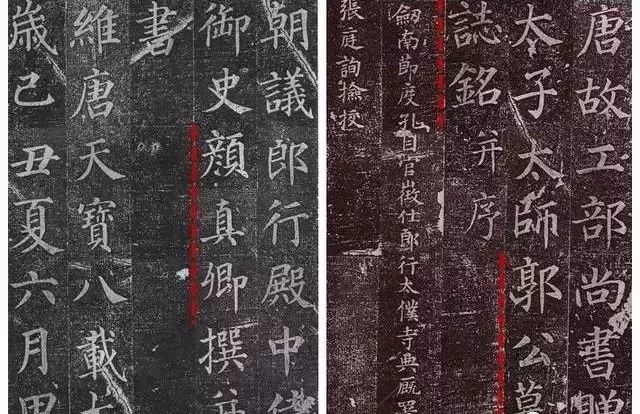 朝議郎行殿中侍
御史顔真卿撰并
書
維唐天寶八載
歲己丑夏六月
唐故工部尚書贈
太子太師郭公墓
誌銘并序
劔南節度孔目官徵仕郎行太僕寺典厩署
張庭詢撿挍